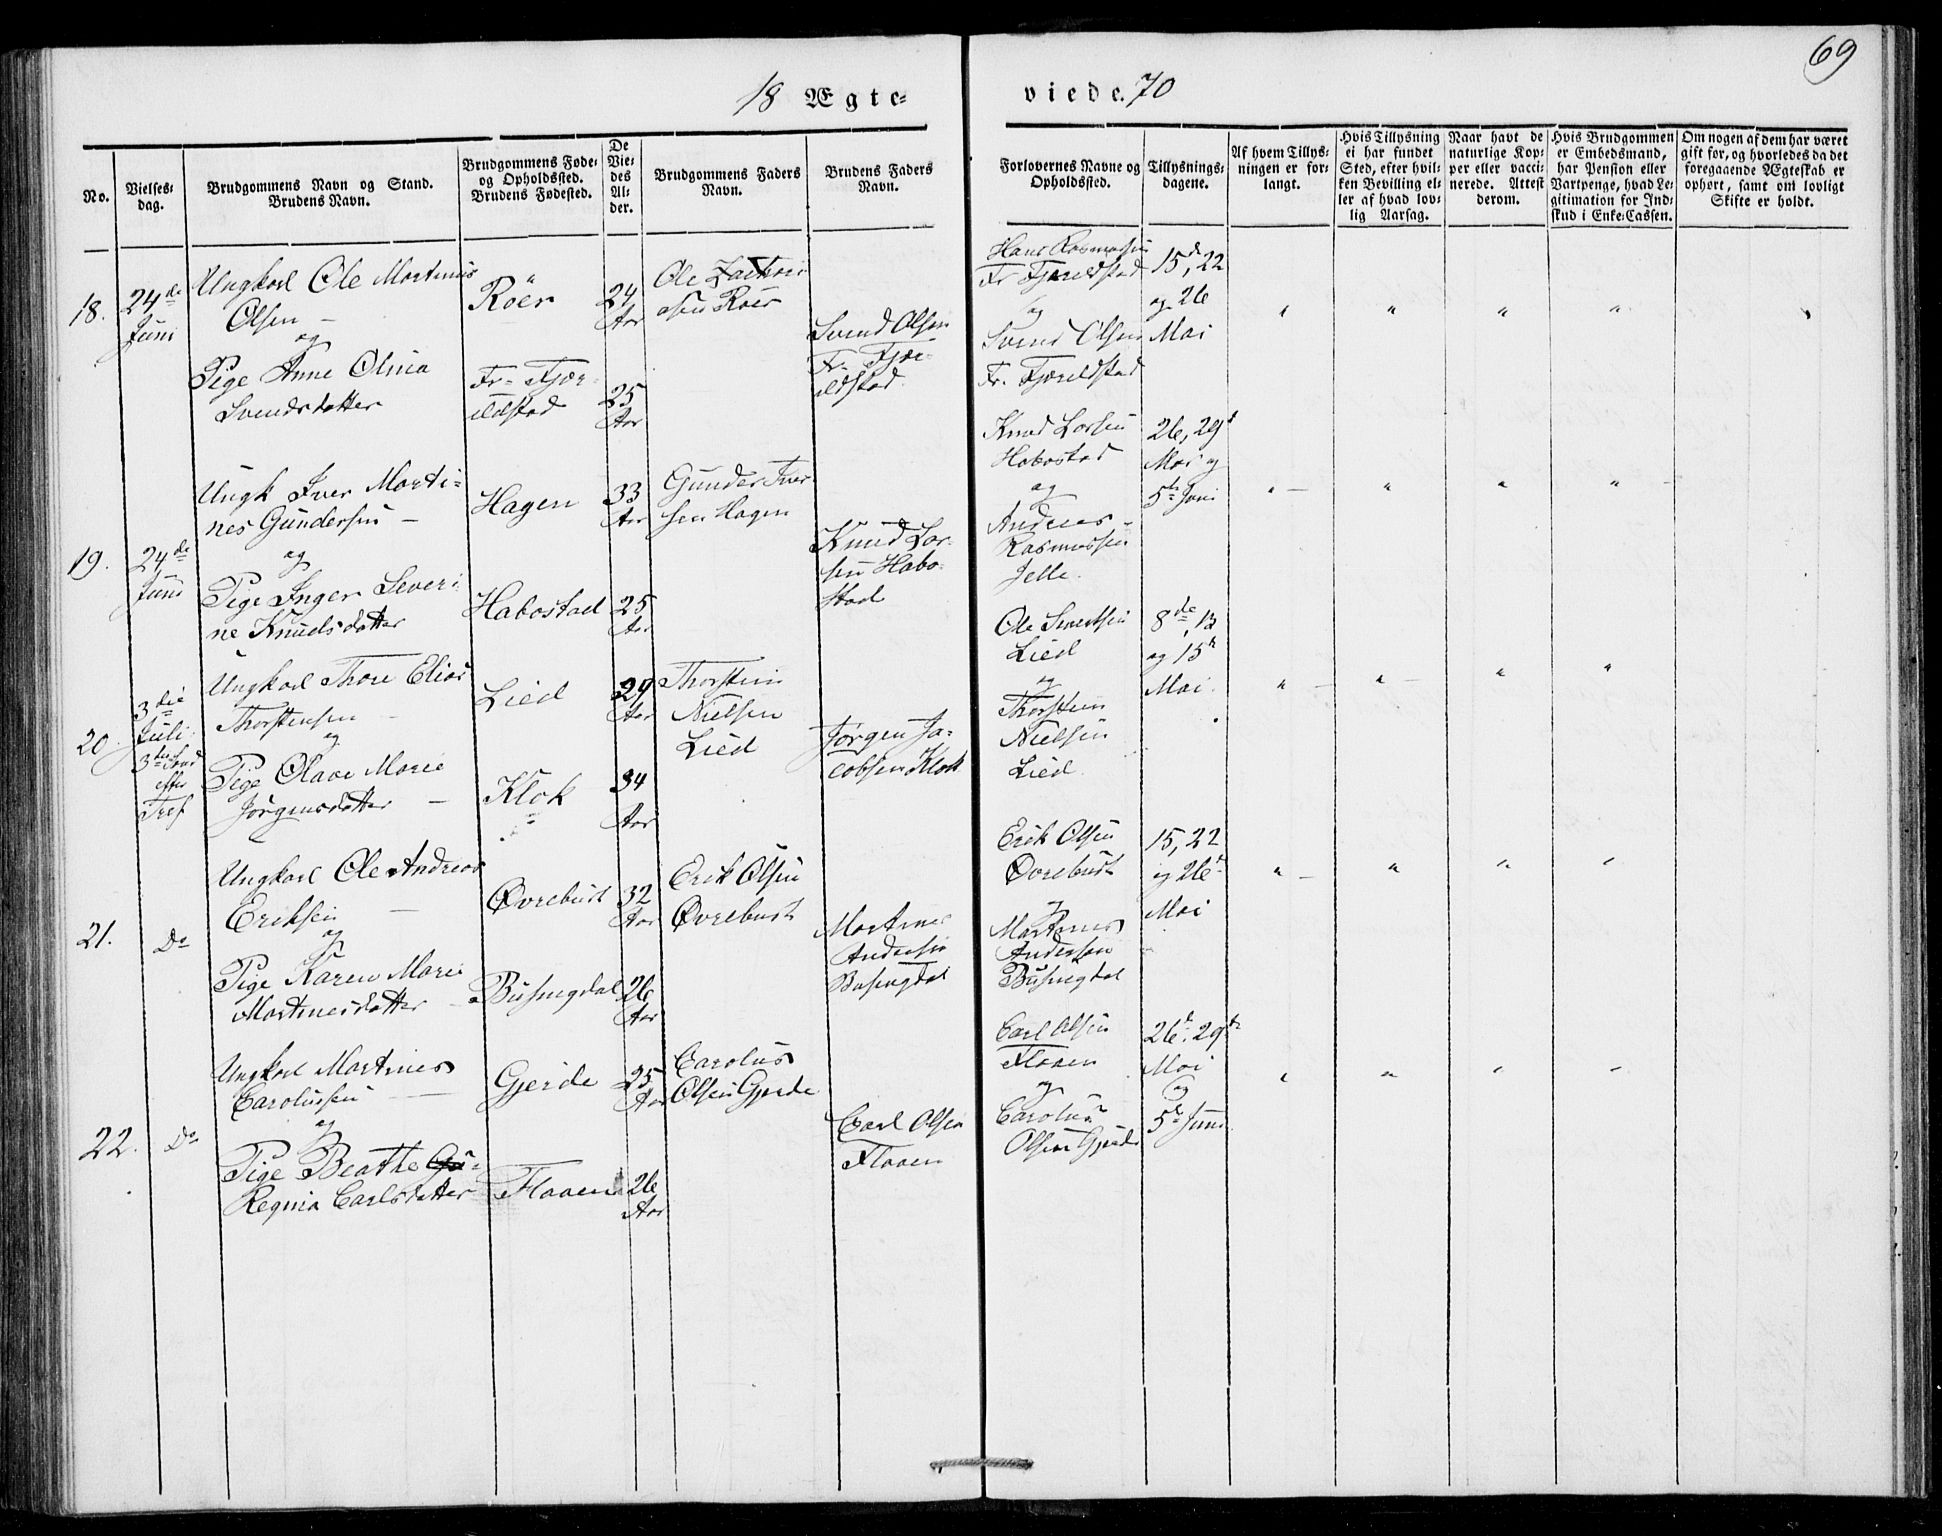 69
18 Ægte-
viede. 70
No.
Vielses-
dag.
Brudgommens Navn og Stand.
Brudens Navn.
Brudgommens Føde-
og Opholdssted.
Brudens Fødested.
De
Vie-
des
Al-
der.
Brudgommens Faders
Navn.
Brudens Faders
Navn.
Forlovernes Navne og
Opholdssted.
Tillysnings-
dagene.
Af hvem Tillys-
ningen er for-
langt.
Hvis Tillysning
ei har fundet
Sted, efter hvil-
ken Bevilling el-
ler af hvad lov-
lig Aarsag.
Naar havt de
naturlige Kop-
per eller vacci-
nerede. Attest
derom.
Hvis Brudgommen
er Embedsmand,
har Pension eller
Vartpenge, hvad Le-
gitimation for Ind-
skud i Enke-Cassen.
Om nogen af dem har været
gift før, og hvorledes da det
foregaaende Ægteskab er
ophørt, samt om lovligt
Skifte er holdt.
18.
24de
Juni
Ungkarl Ole Martinus
Olsen —
og
Pige Anne Olina
Svendsdatter
Roer
Fr. Fjær-
ildstad
24
Aar
25
Aar
Ole Zachari
sen Roer
Svend Olsen
Fr. Fjæ-
ildstad.
Hans Rasmussen
Fr. Fjæreldstad
og
Svend Olsen
Fr. Fjæreldstad
15d, 22
og 26
Mai
" " " "
19.
24de
Juni
Ungk Iver Marti-
nes Gundersen —
og
Pige Inger Severi
ne Knudsdatter
Hagen
Habostad
33
Aar
25
Aar
Gunder Iver
sen Hagen
Knud Lar-
sen Habo-
stad
Knud Larsen
Habostad
og
Andreas
Rasmussen
Jelle.
26, 29d
Mai og
5te Juni
" — " " " —
20.
3die
Juli
3die Sønd
efter
Tref
Ungkarl Thore Elias
Thorstensen —
og
Pige Olave Marie
Jørgensdatter —
Lied
Klok
29
Aar
34
Aar
Thorstein
Nielsen
Lied
Jørgen Ja-
cobsen Klok
Ole Sivertsen
Lied
og
Thorstein
Nielsen
Lied.
8de, 13
og 15de
Mai.
" — " — " "
21.
Do
Ungkarl Ole Andreas
Eriksen —
og
Pige Karen Marie
Martinesdatter —
Øvrebust
Busengdal
32
Aar
26
Aar
Erik Olsen
Øvrebust
Martines
Andersen
Busengdal
Erik Olsen
Øvrebust
og
Martines
Andersen
Busengdal
15, 22
og 26d
Mai
" — " " "
22.
Do
Ungkarl Martines
Carolussen —
og
Pige Beathe
Regina Carlsdatter
Gjerde
Flaaen
25
Aar
26
Aar
Carolus
Olsen Gjerde
Carl Olsen
Flaaen
Carl Olsen
Flaaen
og
Carolus
Olsen Gjerde
26d, 29de
Mai
og
5te Juni
" " " "